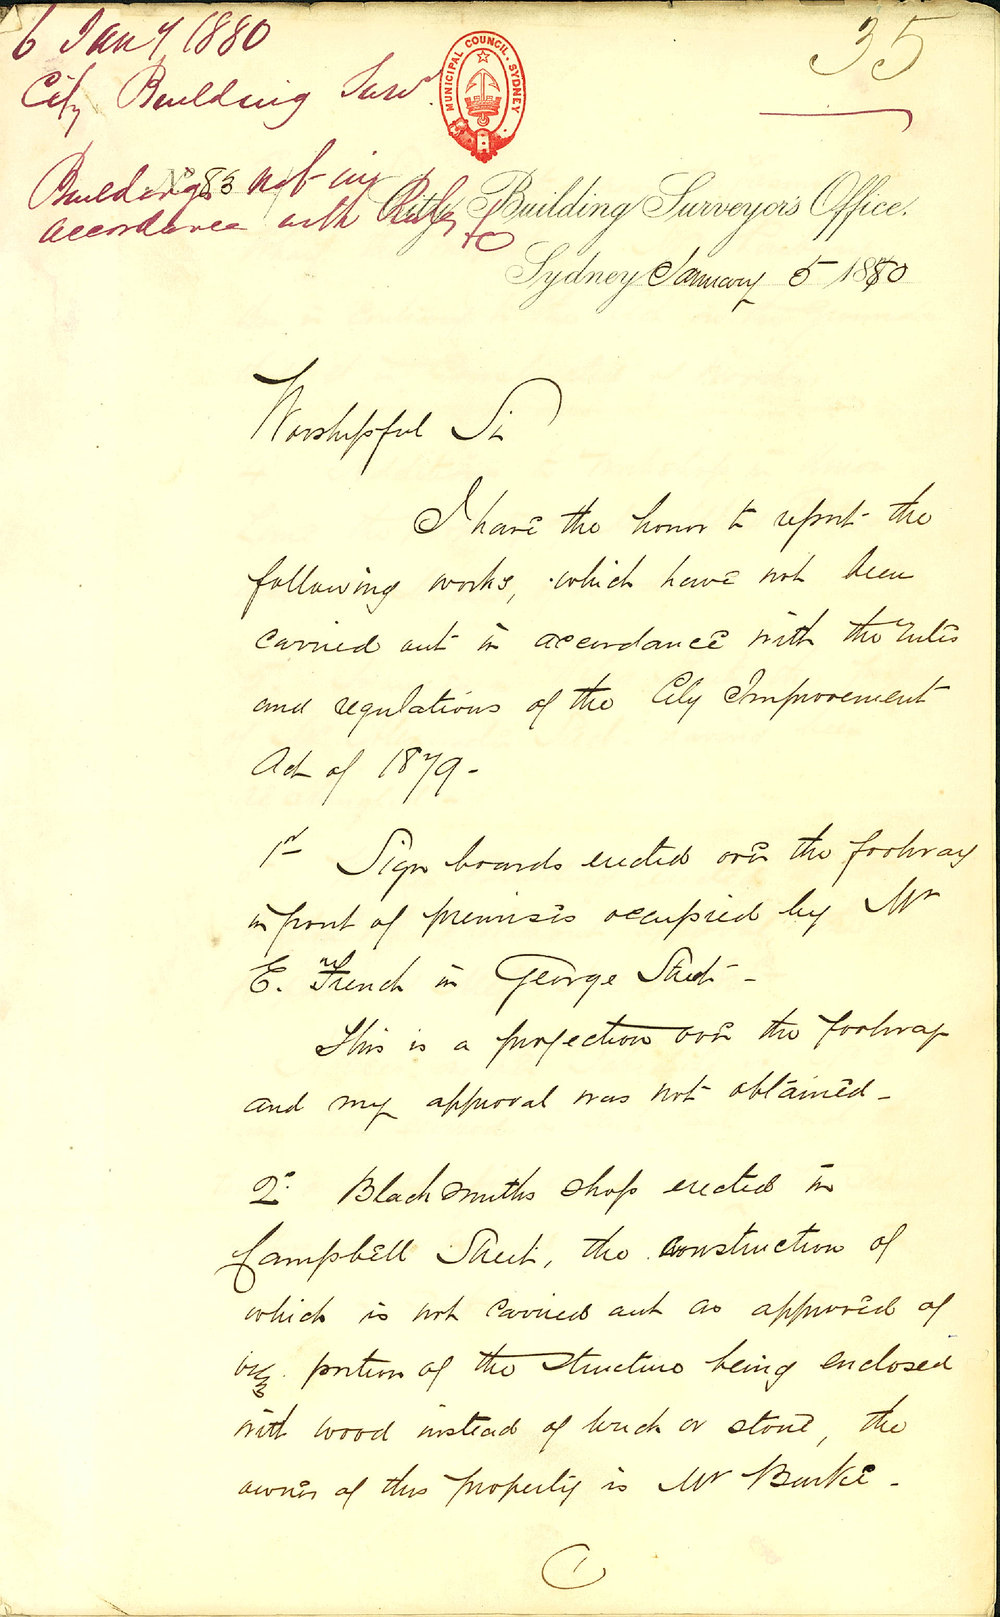 6 Jany 1880
35
City Building Surv.r
MUNICIPAL COUNCIL. SYDNEY
Buildings not in
accordance with
No 83
City Building Surveyors Office.
Sydney January 5 1880
Worshipful Sir
I have the honor to report the
following works, which have not been
carried out in accordance with the rules
and regulations of the City Improvement
Act of 1879 -
1st Sign boards erected over the footway
in front of premises occupied by Mr
E. French in George Street -
This is a projection over the footway
and my approval was not obtained -
2. Blacksmiths shop erected in
Campbell Street, the construction of
which is not carried out as approved of
viz. portion of the structure being enclosed
with wood instead of brick or stone, the
owner of this property is Mr Burke -